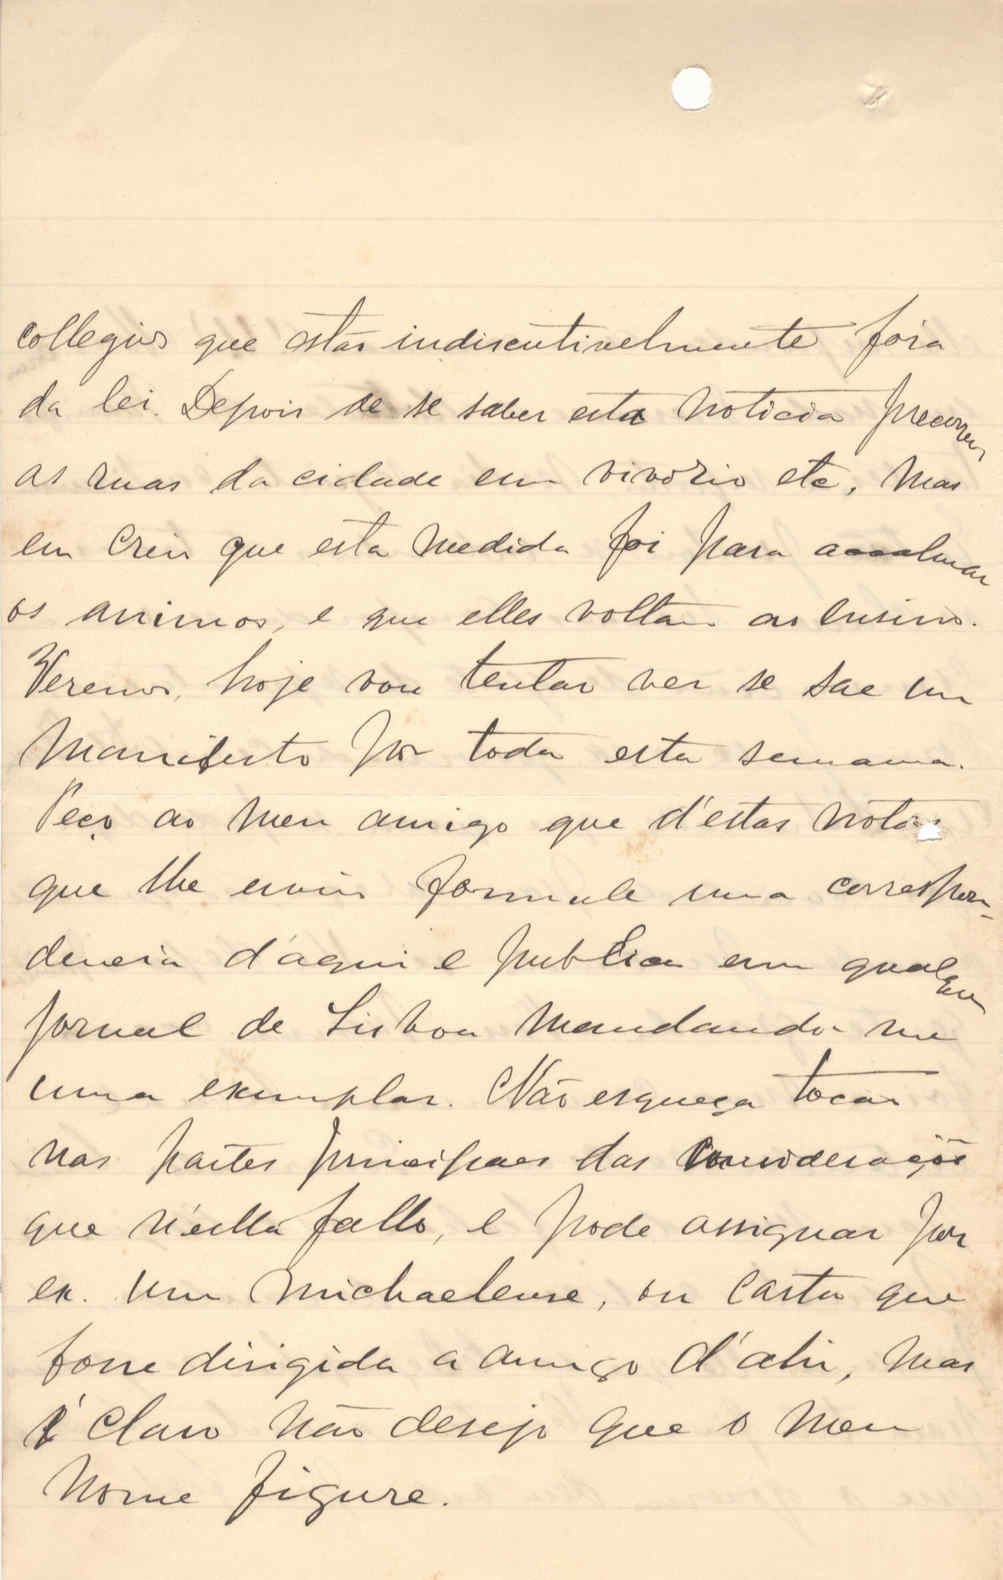 collegios que estão indiscutivelmente fóra
da lei. Depois de se saber esta noticia precorreu
as ruas da cidade em vivorio etc, mas
eu creio que esta medida foi para acalmar
os animos, e que elles voltam ao ensino.
Veremos, hoje vou tentar ver se sae um
manifesto por toda esta semana.
Peço ao meu amigo que d'estas notas
que lhe envio formule uma correspon-
dencia d'aqui e publica em qualquer
jornal de Lisboa mandando me
uma exemplar. Não esqueça tocar
nas partes principaes das considerações
que n'ella fallo, e pode assignar por
ex. um michaelense, ou carta que
fosse dirigida a amigo d'ahi, mas
é claro não desejo que o meu
nome figure.